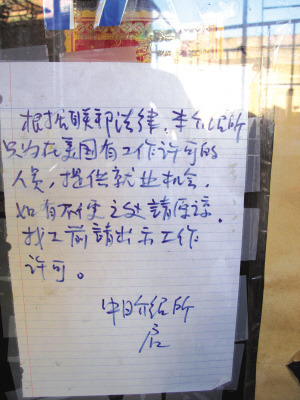 根据联邦法律，本介绍所
只为在美国有工作许可的
人员，提供就业机会，
如有不便之处請原谅。
找工前請出示工作
许可。
中日介绍所
启